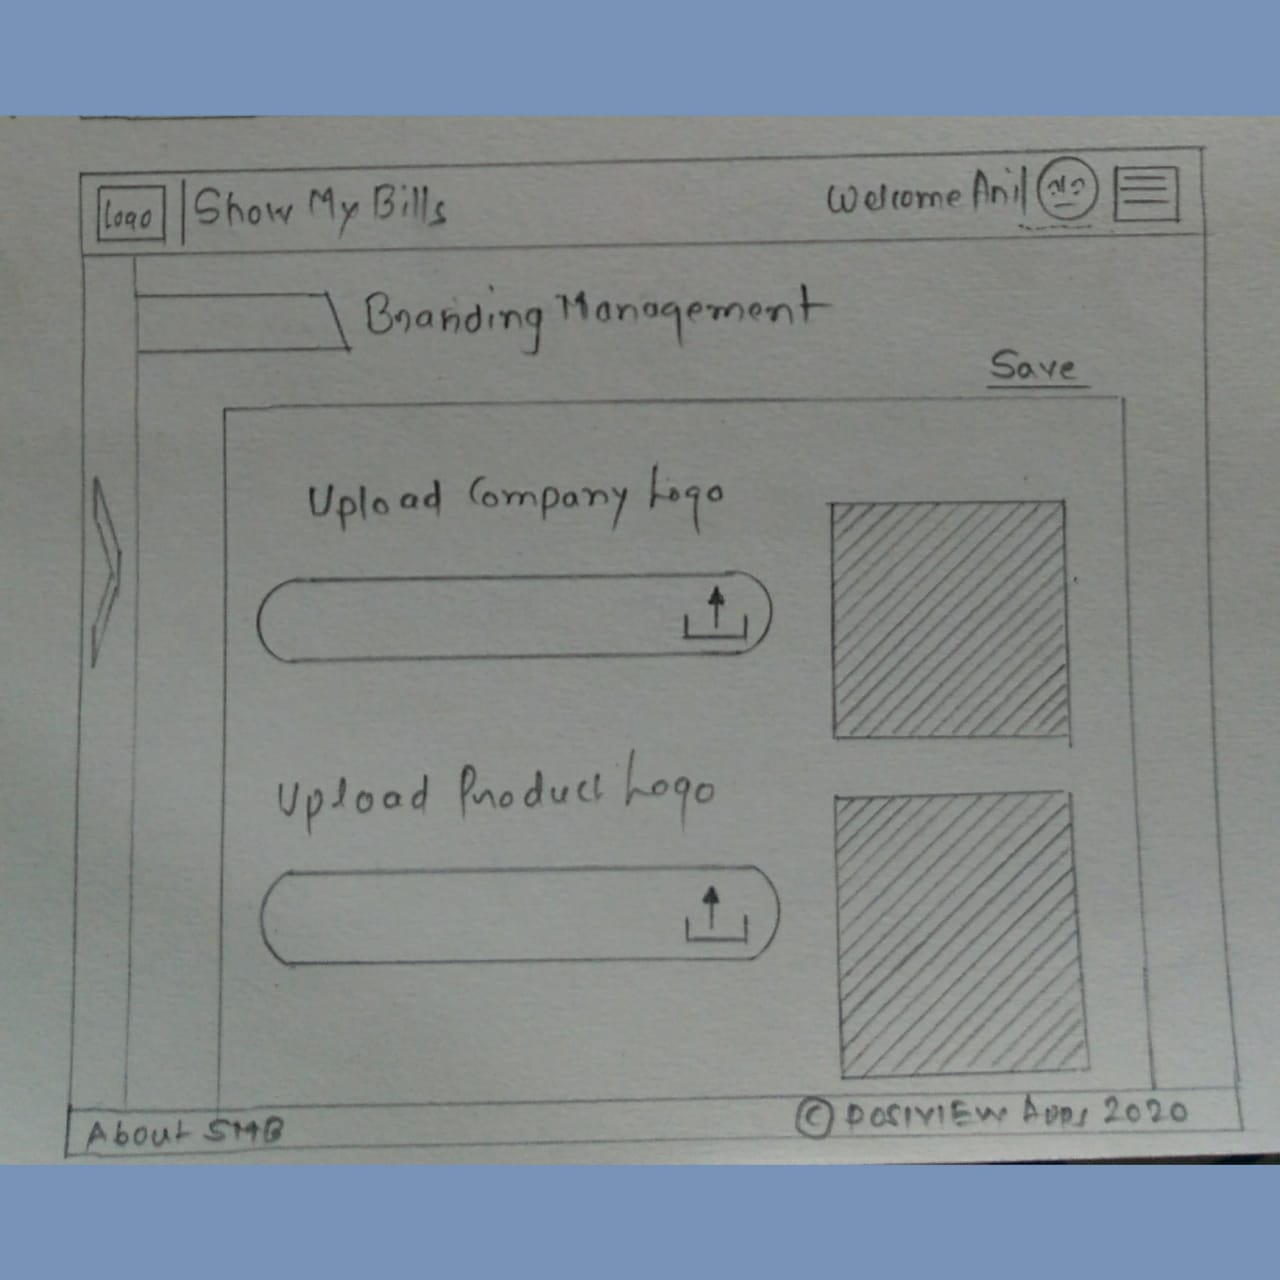 Logo Show My Bills Welcome Anil
Branding Management
Save
Upload Company Logo
Upload Product Logo
About SMB © POSIVIEW Apps 2020